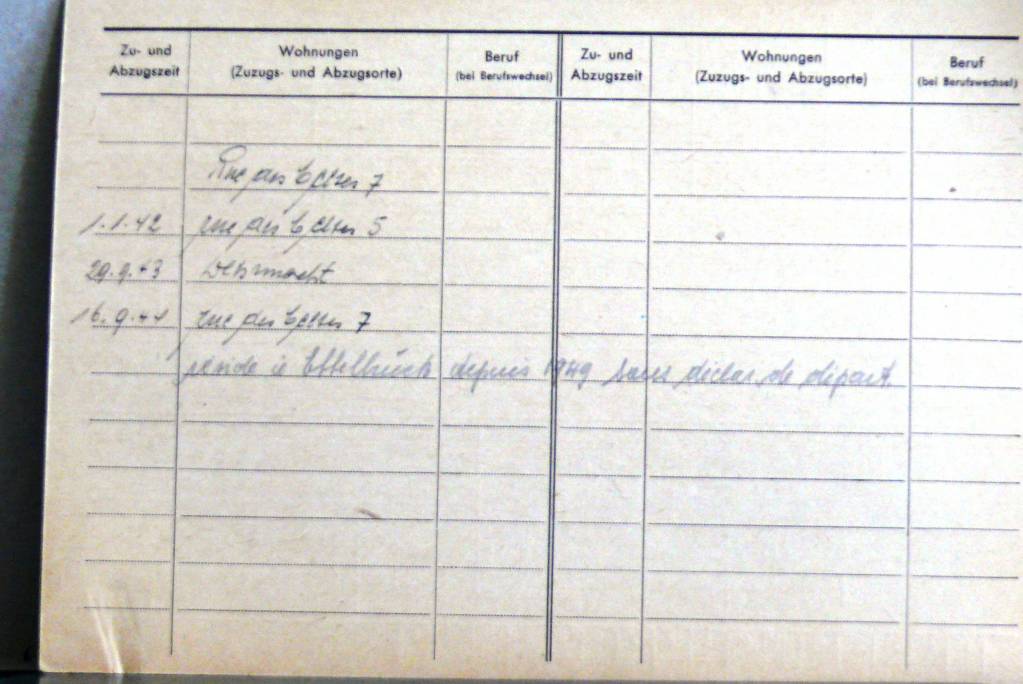 Zu- und Abzugszeit Wohnungen (Zuzugs- und Abzugsorte) Beruf (bei Berufswechsel) Zu- und Abzugszeit Wohnungen (Zuzugs- und Abzugsorte) Beruf (bei Berufswechsel)
Rue des 7
1.1.42 rue des 5
29.9.43 Wehrmacht
16.9.44 rue des 7
réside à Ettelbrück depuis 1949 sans déclar. de départ